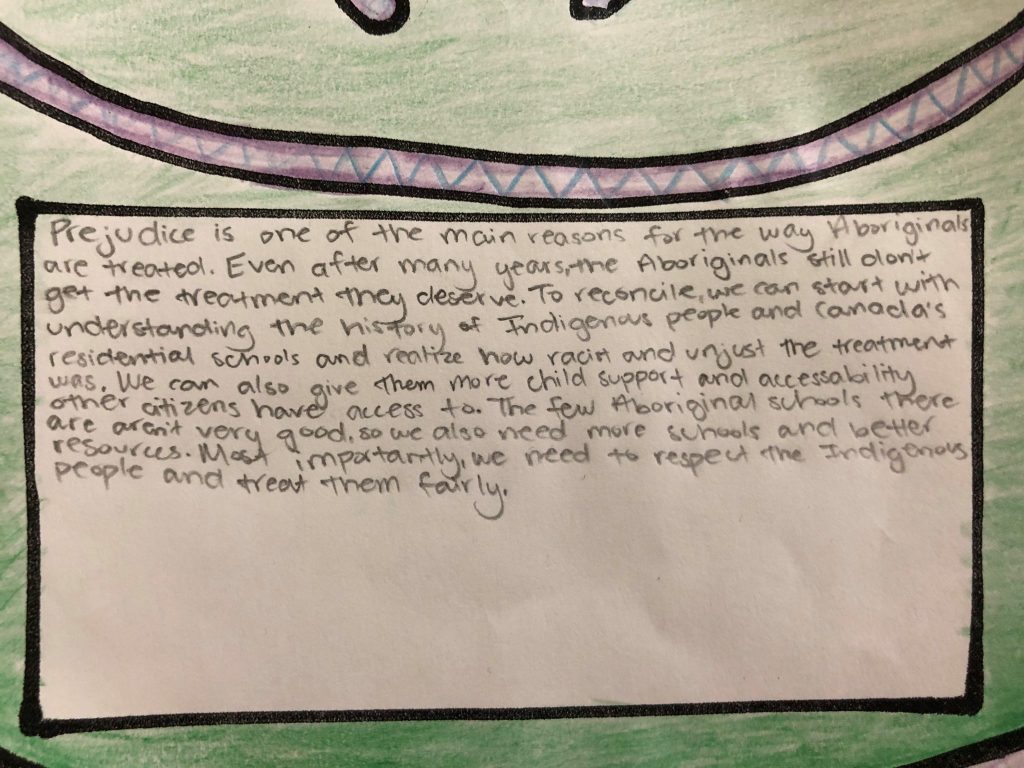 Prejudice is one of the main reasons for the way Aboriginals
are treated. Even after many years, the Aboriginals still don't
get the treatment they deserve. To reconcile, we can start with
understanding the history of Indigenous people and Canada's
residential schools and realize how racist and unjust the treatment
was. We can also give them more child support and accessability
other citizens have access to. The few Aboriginal schools there
are aren't very good, so we also need more schools and better
resources. Most importantly, we need to respect the Indigenous
people and treat them fairly.